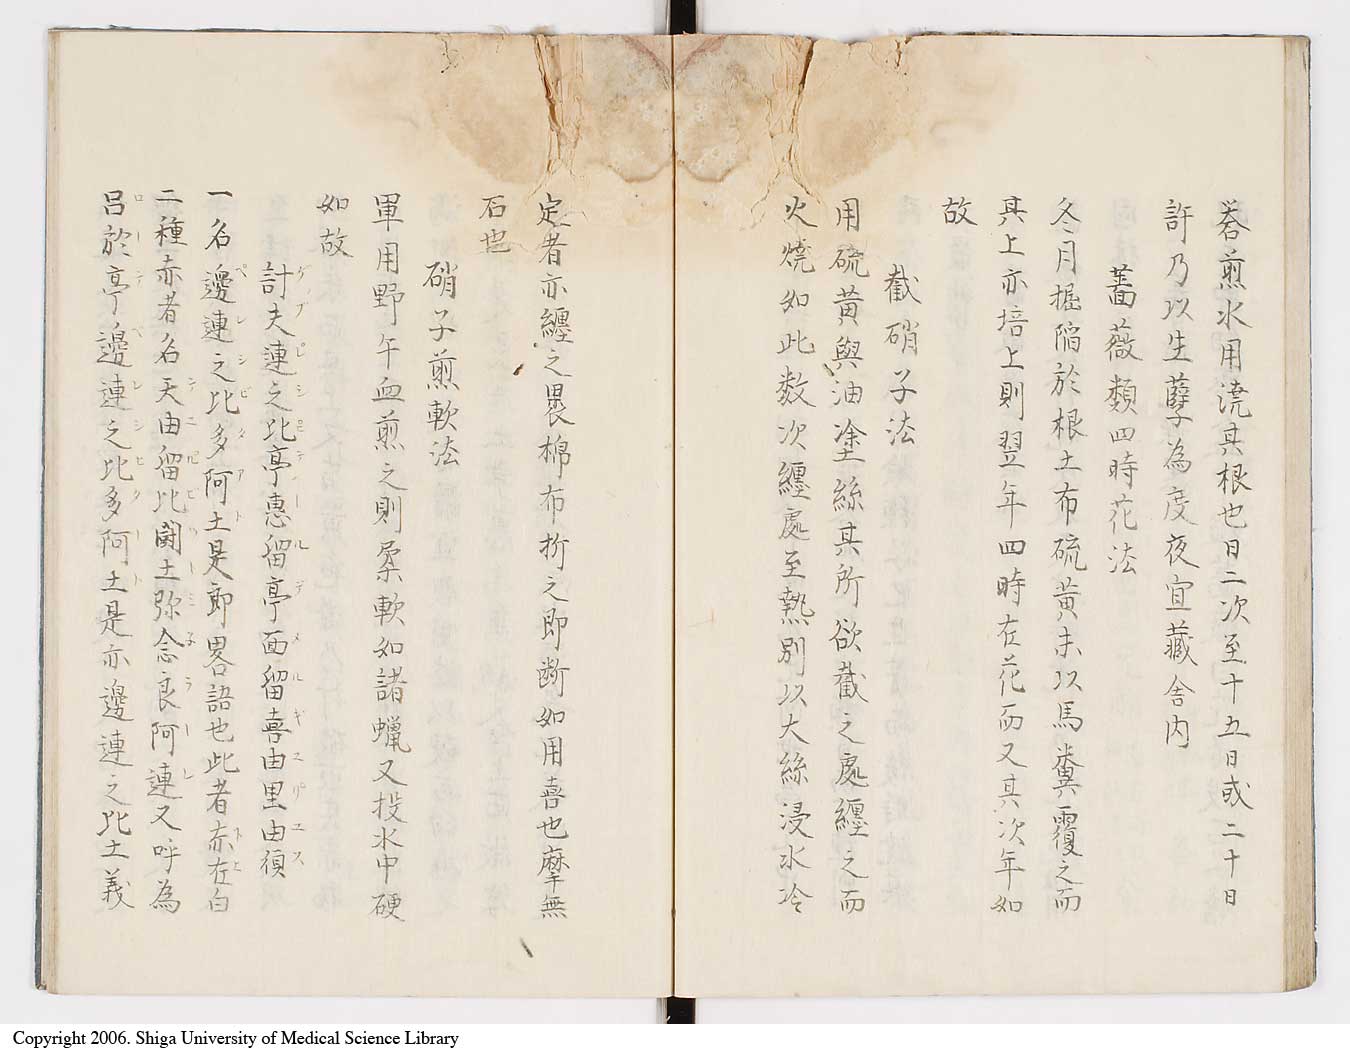 莙煎水用澆其根也日二次至十五日或二十日
許乃以生孽為度夜宜藏舎内
薔薇類四時花法
冬月掘陥於根土布硫黄末以馬糞覆之而
其上亦培土則翌年四時在花而又其次年如
故
截硝子法
用硫黄與油塗絲其所欲截之處纏之而
火焼如此数次纏處至熱別以大絲浸水冷
定者亦纏之畏棉布折之即断如用喜也摩無
石也
硝子煎軟法
軍用野午血煎之則柔軟如諸蝋又投水中硬
如故
計夫連之比亭惠留亭面留喜由里由須
ゲブレシピテールデメルギユリユス
一名邊連之比多阿土是郎畧語也此者赤在白
ペレシピタアト
二種赤者名天由留比閫土弥念良阿連又呼為
呂於亭邊連之比多阿土是亦邊連之比土義
ローデペレシヒタート
Copyright 2006. Shiga University of Medical Science Library